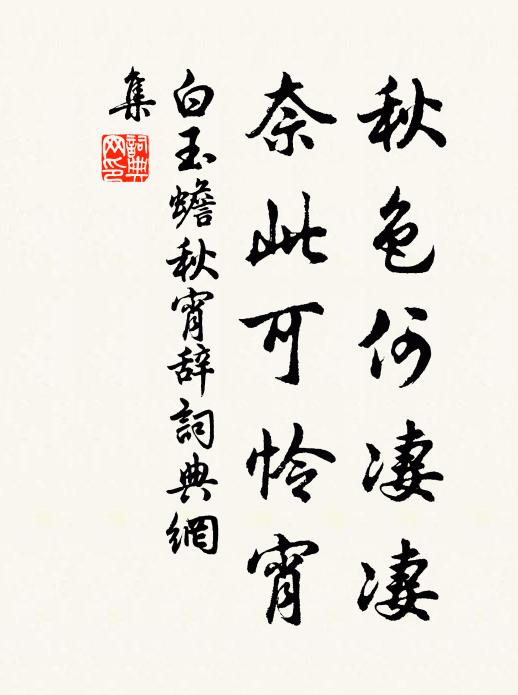 秋色何凄凄
奈此可怜宵
白玉蟾秋宵辞詞典網
集
詞典网印